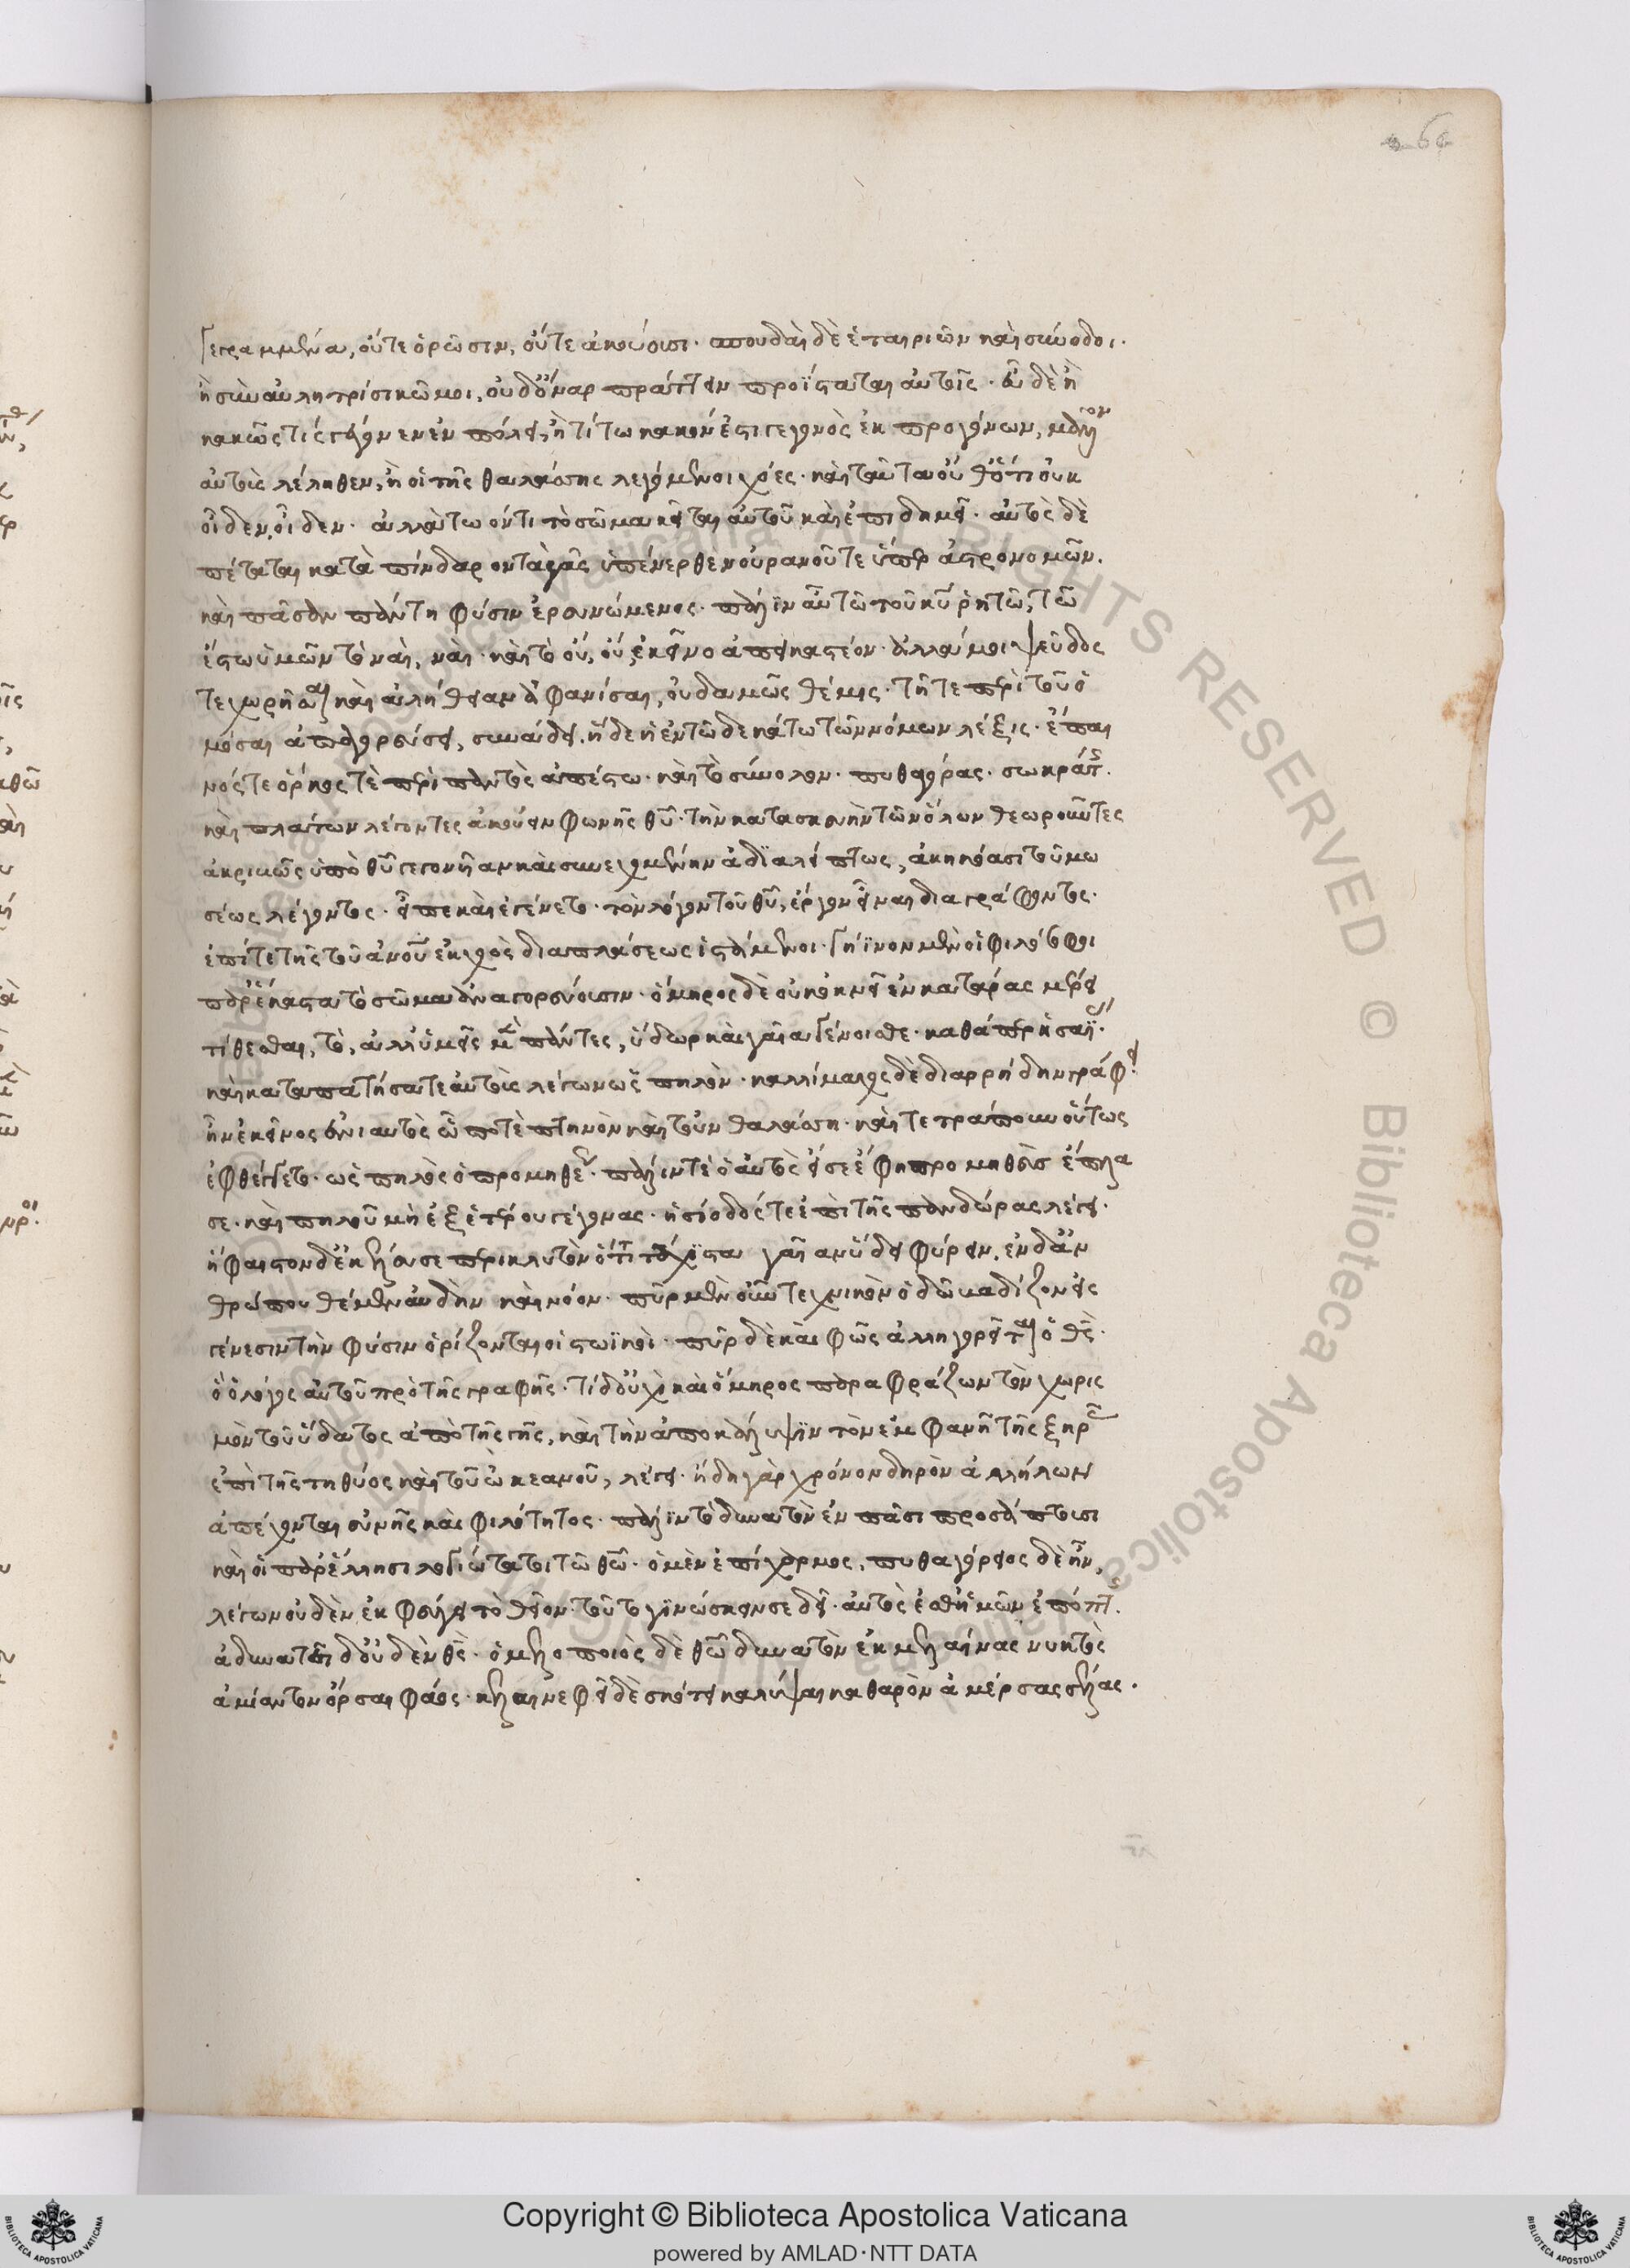 66
γεγραμμένα, οὔτε ὁρῶσιν, οὔτε ἀκούουσι· σπουδαὶ δὲ ἑταιριῶν καὶ σύνοδοι·
ἢ σὺν αὐλητρίσι κῶμοι, οὐδ' ὄναρ πράττειν προΐσταται αὐτοῖς· εὖ δὲ ἢ
κακῶς τίς γέγονεν ἐν πόλει, ἢ τί τω κακόν ἐστι γεγονὸς ἐκ προγόνων, μᾶλλον
αὐτοὺς λέληθεν, ἢ οἱ τῆς θαλάσσης λεγόμενοι χόες· καὶ ταῦτα οὐδ' ὅτι οὐκ
οἶδεν, οἶδεν· ἀλλὰ τω ὄντι τὸ σῶμα κεῖται αὐτοῦ καὶ ἐπιδημεῖ· αὐτὸς δὲ
πέταται κατὰ πίνδαρον τᾶς γᾶς ὑπένερθεν οὐρανοῦ τε ὕπερ ἀστρονομῶν.
καὶ πᾶσαν πάντη φύσιν ἐρευνώμενος· πάλιν αὖ τῶ τοῦ κυ ρητῶ, τῶ
ἔστω ὑμῶν τὸ ναὶ, ναὶ· καὶ τὸ οὔ, οὔ, ἐκεῖνο ἀπεικαστέον· ἀλλά μοι ψεῦδός
τε χωρῆσαι καὶ ἀλήθειαν ἀφανίσαι, οὐδαμῶς θέμις· τῆ τε περὶ τοῦ ὀ
μόσαι ἀπαγορεύσει, συνάδει ἥδε ἡ ἐν τῶ δεκάτω τῶν νόμων λέξις· ἔπαι
νός τε ὅρκος τὲ περὶ παντὸς ἀπέστω· καὶ τὸ σύνολον· πυθαγόρας· σωκράτης·
καὶ πλάτων λέγοντες ἀκούειν φωνῆς θυ· τὴν κατασκευὴν τῶν ὅλων θεωροῦντες
ἀκριβῶς ὑπὸ θυ γεγονῆαν καὶ συνεχομένην ἀδιαλείπτως, ἀκηκόασι τοῦ μω
σέως λέγοντος· εἶπε καὶ ἐγένετο· τὸν λόγον τοῦ θυ, ἔργον εἶναι διαγράφοντος·
ἐπί τε τῆς τοῦ ανου ἐκ χοὸς διαπλάσεως ἱστάμενοι· γήϊνον μὲν οἱ φιλόσοφοι
παρ' ἕκαστα τὸ σῶμα ἀναγορεύουσιν· ὅμηρος δὲ οὐκ ὀκνεῖ ἐν κατάρας μέρει
τίθεσθαι, τὸ, ἀλλ' ὑμεῖς μὲν πάντες, ὕδωρ καὶ γαῖα γένοισθε· καθάπερ ἡσαΐας·
καὶ καταπατήσατε αὐτοὺς λέγων ὡς πηλὸν· καλλίμαχος δὲ διαρρήδην γράφει·
ἦν ἐκεῖνος οὑνιαυτὸς ὦ ποτὲ πτηνὸν καὶ τοὐν θαλάσση· καὶ τετράπουν οὕτως
ἐφθέγγετο· ὡς πηλὸς ὁ προμηθεύς· πάλιν τὲ ὁ αὐτὸς εἴ σε ἔφη προμηθεὺς ἔπλα
σε· καὶ πηλοῦ μὴ ἐξ ἑτέρου γέγονας· ἡσίοδός τε ἐπὶ τῆς πανδώρας λέγει·
ἥφαιστον δ' ἐκέλευσε περικλυτὸν ὅττι τάχιστα γαῖαν ὕδει φύρειν, ἐν δ' ἀν
θρώπου θέμεν αὐδὴν καὶ νόον· πῦρ μὲν οὖν τεχνικὸν ὁδῶ βαδίζον εἰς
γένεσιν τὴν φύσιν ὁρίζονται οἱ στωϊκοὶ· πῦρ δὲ καὶ φῶς ἀλληγορεῖται ὁ θς·
ὁ ὁ λόγος αὐτοῦ πρὸ τῆς γραφῆς· τί δ' οὐχὶ καὶ ὅμηρος παραφράζων τὸν χωρισ
μὸν τοῦ ὕδατος ἀπὸ τῆς γῆς, καὶ τὴν ἀποκάλυψιν τὸν ἐμφανῆ τῆς ξηρᾶς
ἐπὶ τῆς τηθύος καὶ τοῦ ὠκεανοῦ, λέγει· ἤδη γὰρ χρόνον δηρὸν ἀλλήλων
ἀπέχονται εὐνῆς καὶ φιλότητος· πάλιν τὸ δυνατὸν ἐν πᾶσι προσάπτουσι
καὶ οἱ παρ' ἕλλησι λογιώτατοι τῶ θω· ὁ μὲν ἐπίχαρμος, πυθαγόρειος δὲ ἦν,
λέγων οὐδὲν ἐκφεύγει τὸ θεῖον· τοῦτο γινώσκειν σε δεῖ· αὐτὸς ἐσθ' ἡμῶν ἐπόπτης·
ἀδυνατεῖ δ' οὐδὲν θς· ὁ μελοποιὸς δὲ θω δυνατὸν ἐκ μελαίνας νυκτὸς
ἀμίαντον ὄρσαι φάος· κελαινεφεῖ δὲ σκότει καλύψαι καθαρὸν ἁμέρας σέλας·